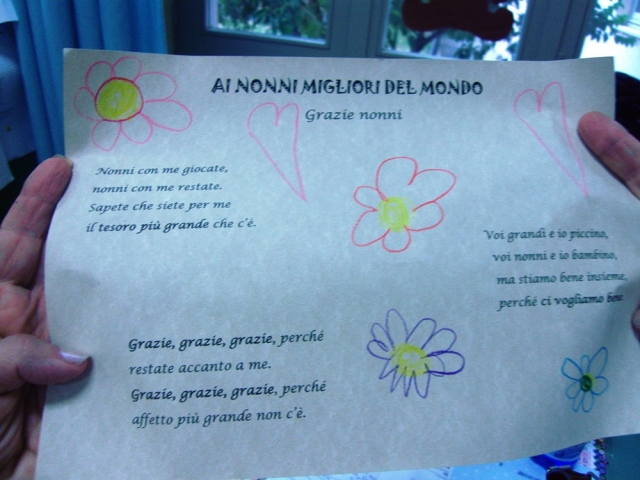 AI NONNI MIGLIORI DEL MONDO
Grazie nonni
Nonni con me giocate,
nonni con me restate.
Sapete che siete per me
il tesoro più grande che c'è.
Voi grandi e io piccino,
voi nonni e io bambino,
ma stiamo bene insieme,
perché ci vogliamo bene
Grazie, grazie, grazie, perché
restate accanto a me.
Grazie, grazie, grazie, perché
affetto più grande non c'è.